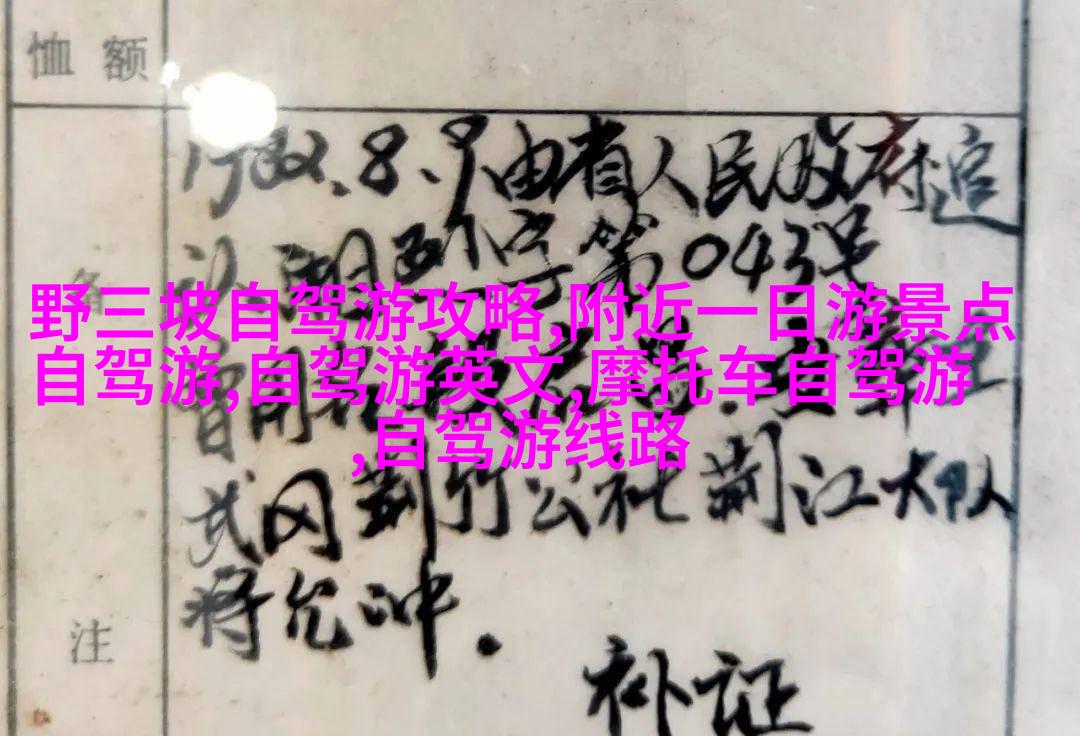 恤额
1982.8.9由省人民政府追
认,湖烈字第043号
备
野三坡自驾游攻略,附近一日游景点
自驾游,自驾游英文,摩托车自驾游
,自驾游线路
武冈荆竹公社荆江大队
蒋允冲.
注
补证